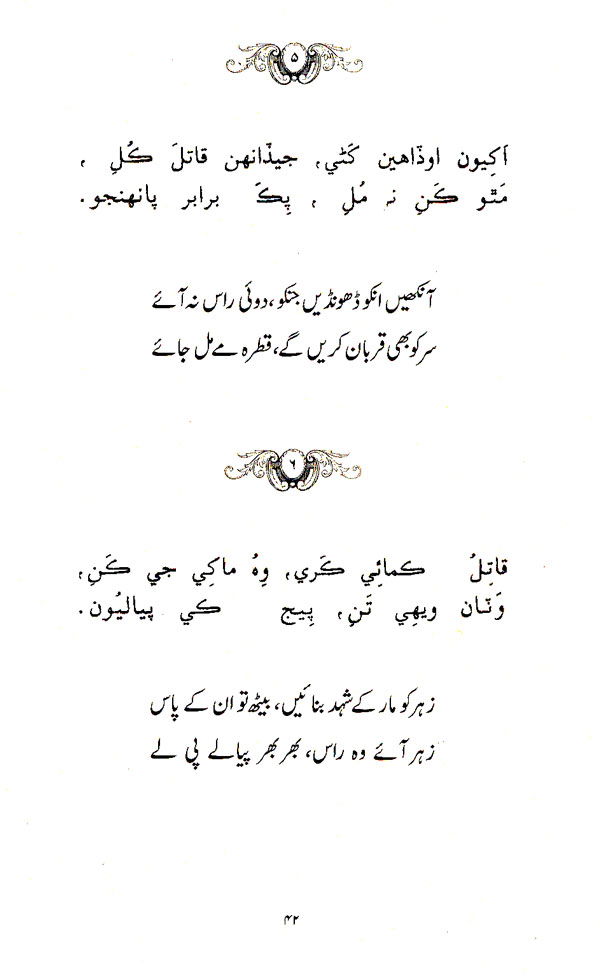 ۵
اَکِيون اوڏاهين کَڻي، جيڏانهن قاتلَ ڪُلِ ،
مَٿو ڪَنِ نہ مُلِ ، پِڪَ برابر پانهنجو.
آنکھیں انکو ڈھونڈیں جتکو، دوئی راس نہ آئے
سر کو بھی قربان کریں گے، قطرہ مے مل جائے
۶
قاتِلُ ڪمائِي ڪَري، وِهُ ماکِي جي ڪَنِ،
وَٽان ويهِي تَنِ، پِيج ڪي پياليُون.
زہر کو مار کے شہد بنائیں، بیٹھ تو ان کے پاس
زہر آئے وہ راس، بھر بھر پیالے پی لے
۴۲